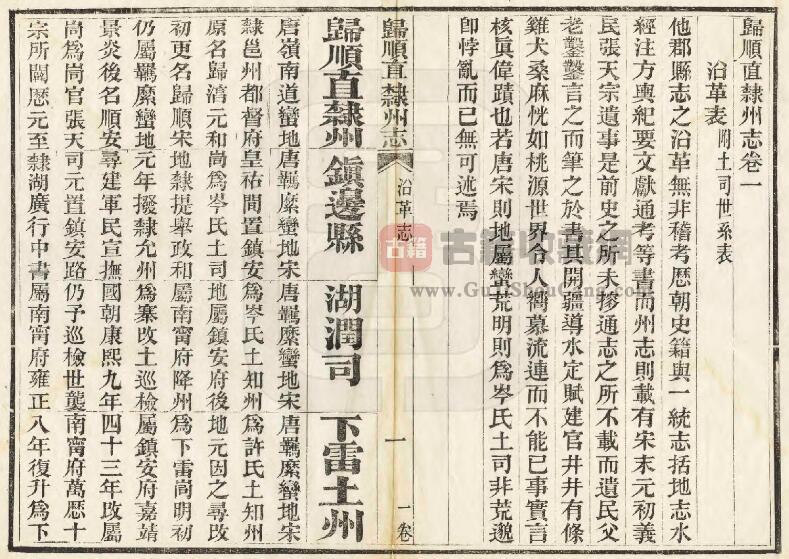 歸順直隸州志卷一
沿革表 附土司世系表
他郡縣志之沿革無非稽考歷朝史籍與一統志括地志水
經注方輿紀要文獻通考等書而州志則載有宋末元初義
民張天宗遺事是前史之所未採通志之所不載而遺民父
老鑿鑿言之而筆之於書其開疆導水定賦建官井井有條
雞犬桑麻恍如桃源世界令人嚮慕流連而不能已事實言
核眞偉蹟也若唐宋則地屬蠻荒明則爲岑氏土司非荒邈
卽悖亂而已無可述焉
歸順直隸州志 沿革志 一 一卷
歸順直隸州 鎭邊縣 湖潤司 下雷土州
唐嶺南道蠻地 唐羈縻蠻地宋 唐羈縻蠻地宋 唐羈縻蠻地宋
隸邕州都督府 皇祐間置鎭安 爲岑氏土知州 爲許氏土知州
原名歸淳元和 峝爲岑氏土司 地屬鎭安府後 地元因之尋改
初更名歸順宋 地隸提舉政和 屬南甯府降州 爲下雷峝明初
仍屬羈縻蠻地 元年撥隸允州 爲寨改土巡檢 屬鎭安府嘉靖
景炎後名順安 尋建軍民宣撫 國朝康熙九年 四十三年改屬
峝爲峝官張天 司元置鎭安路 仍予巡檢世襲 南甯府萬歷十
宗所闢歷元至 隸湖廣行中書 屬南甯府雍正 八年復升爲下
古籍 古籍收藏網
www.GujiShouCang.com